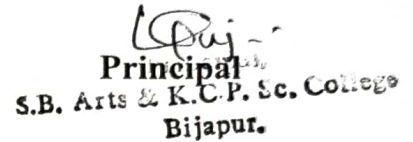 Principal
S.B. Arts & K.C.P. Sc. College
Bijapur.